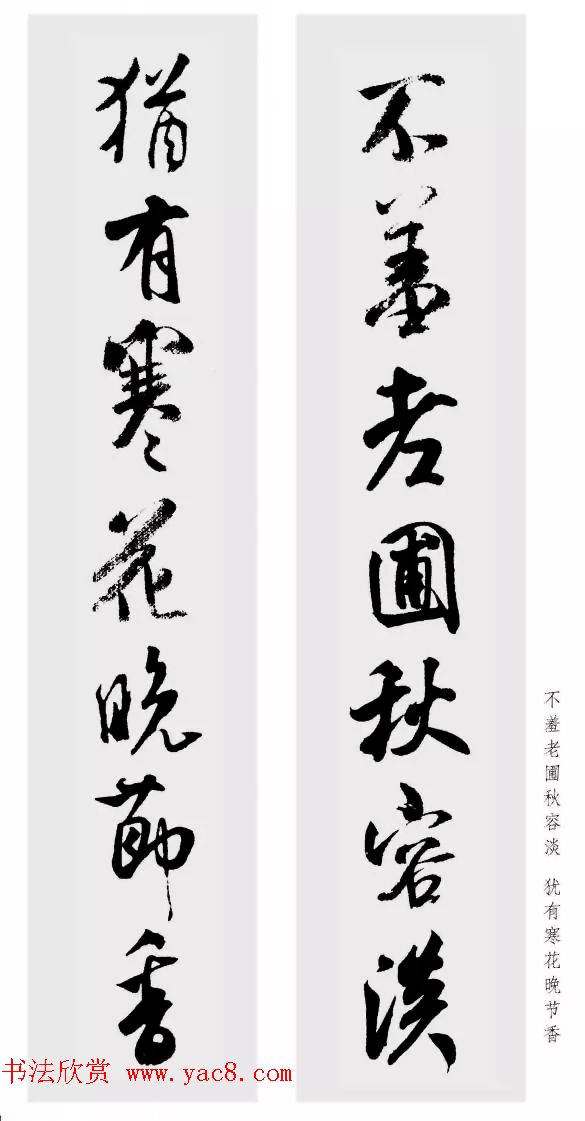 不羞老圃秋容淡
猶有寒花晚節香
不羞老圃秋容淡 犹有寒花晚节香
书法欣赏 www.yac8.com